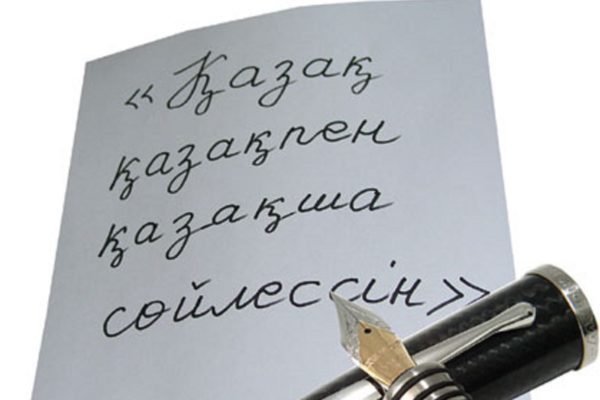 «Қазақ
қазақпен
қазақша
сөйлессін»